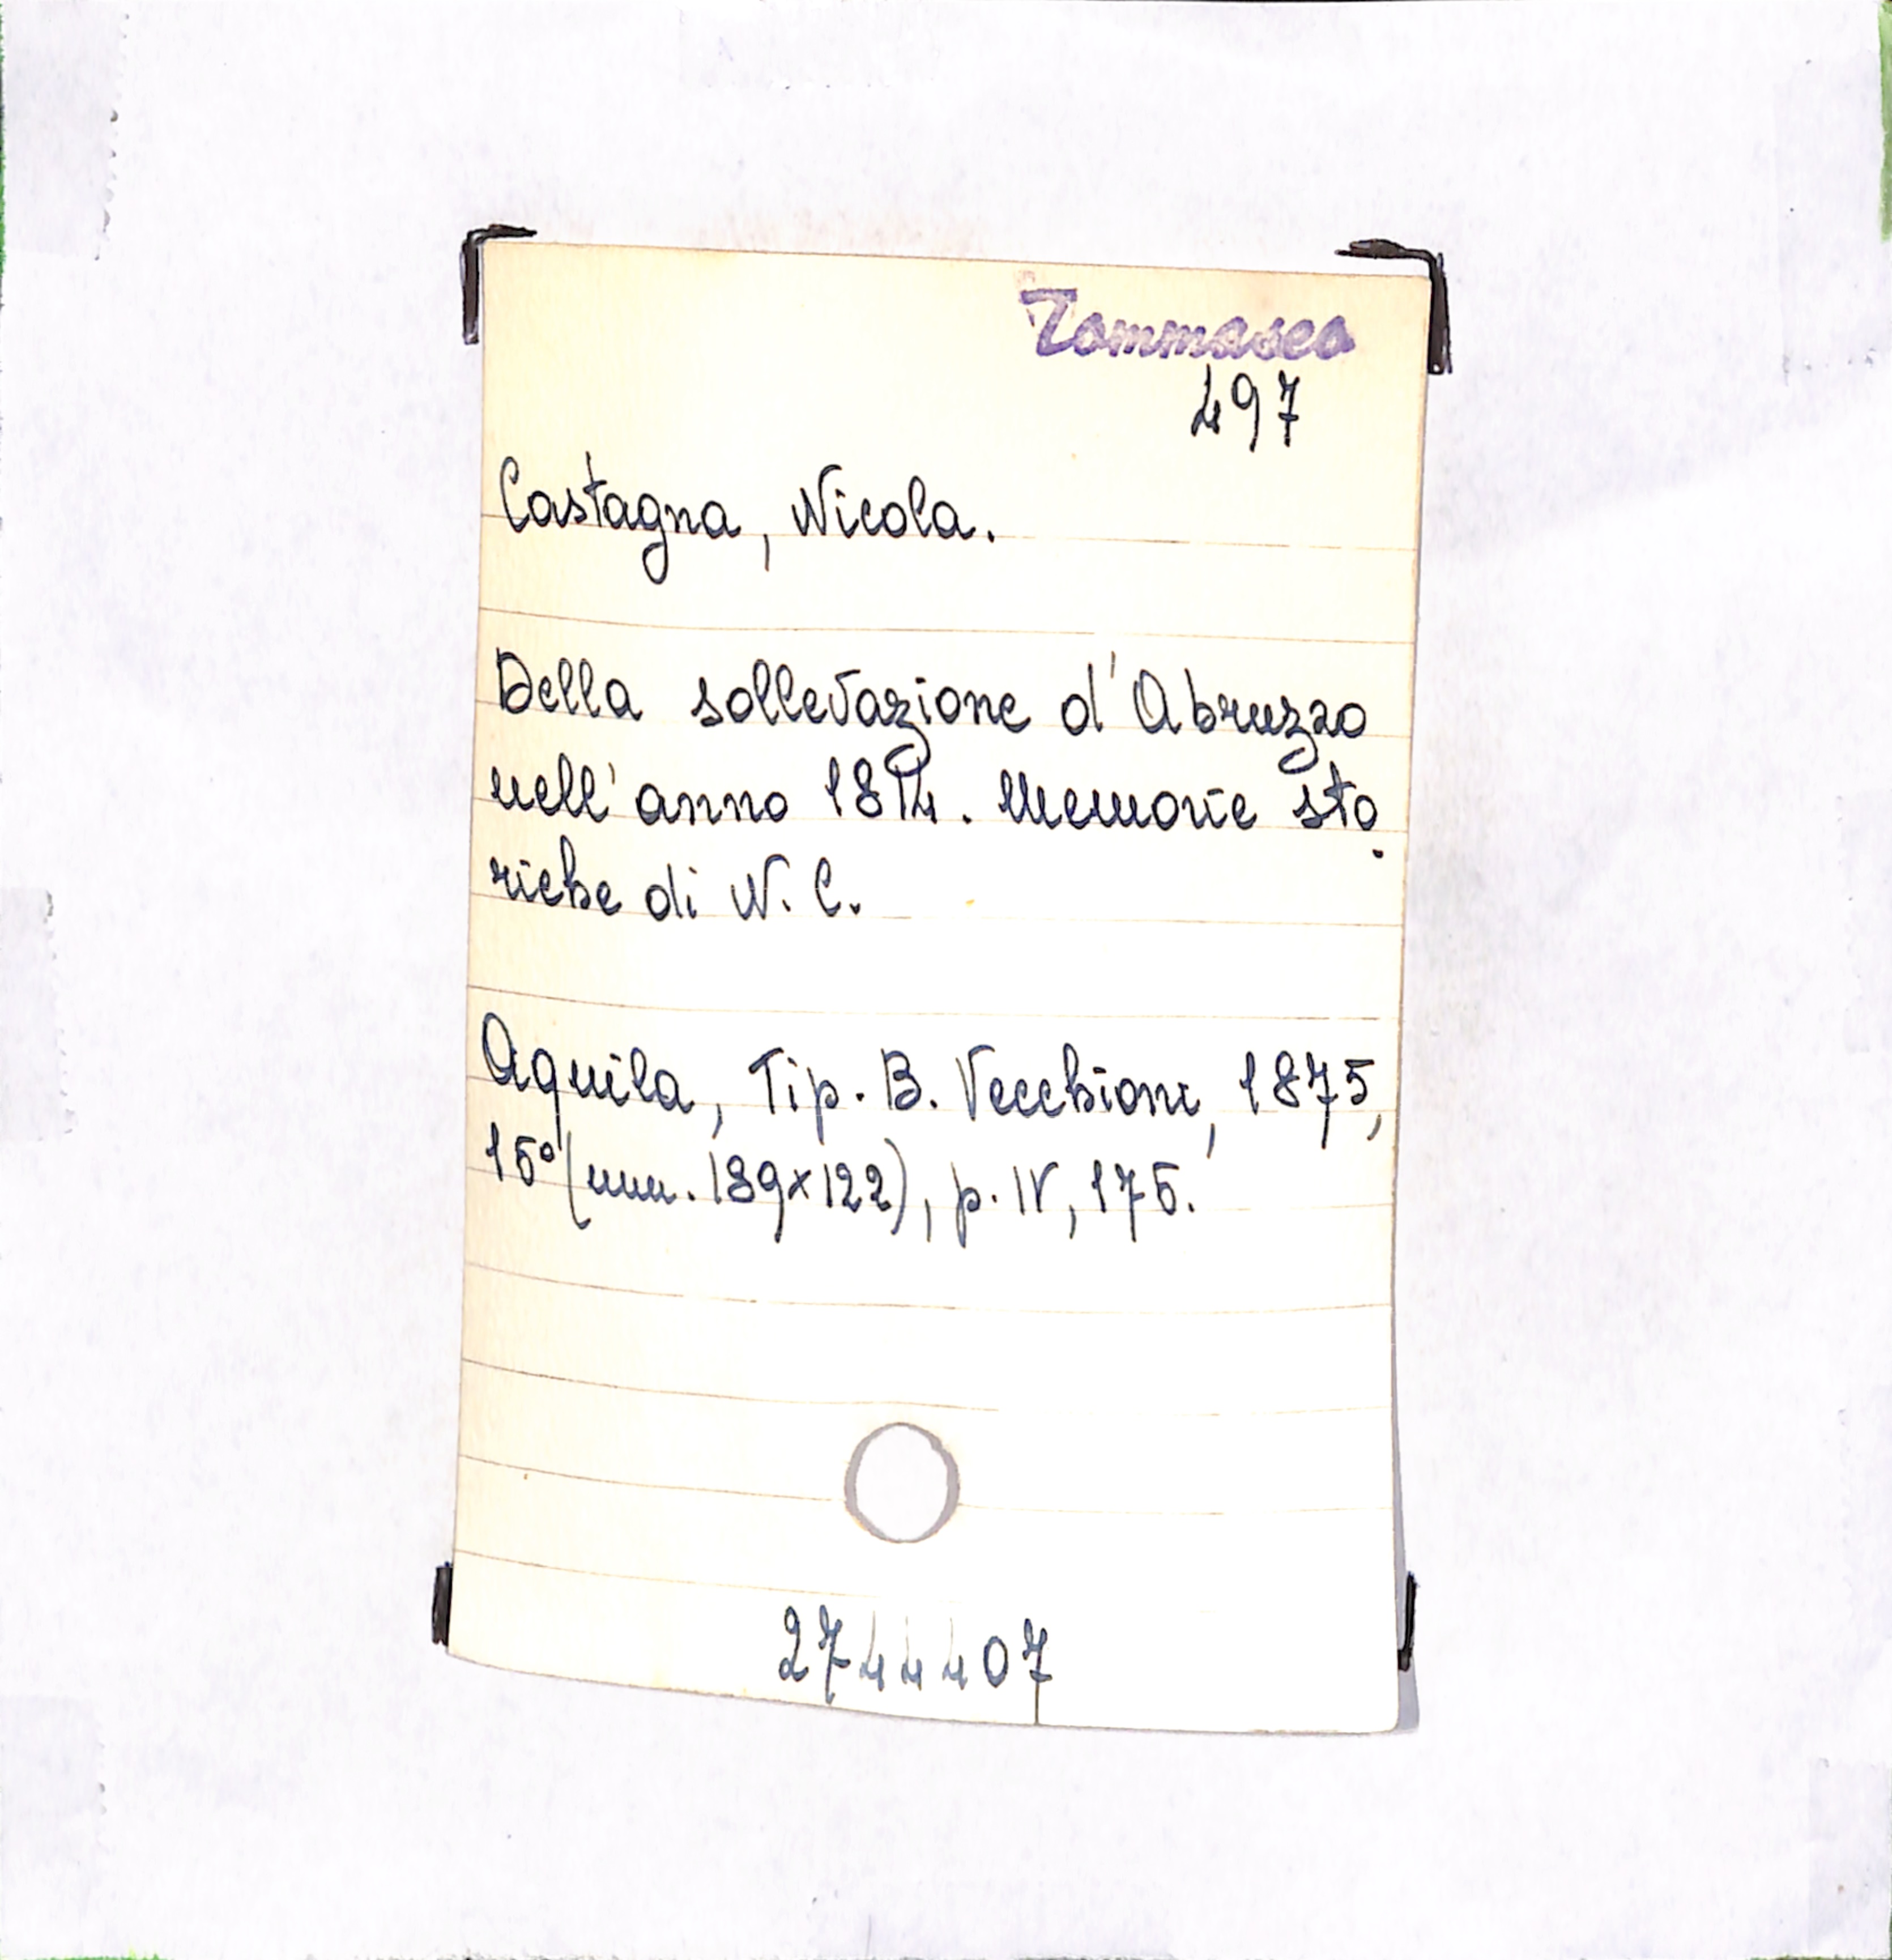 Tommaseo
497
Castagna, Nicola.
Della sollevazione d'Abruzzo
nell'anno 1814. Memorie sto
riche di N. C.
Aquila, Tip. B. Vecchioni, 1875,
16° (mm. 189x122), p. IV, 176.
2744407